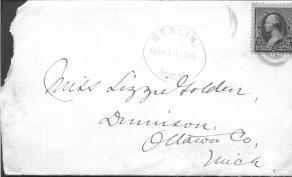 BERLIN,
MICH.
Miss Lizzie Golden,
Dennison,
Ottawa Co,
Mich